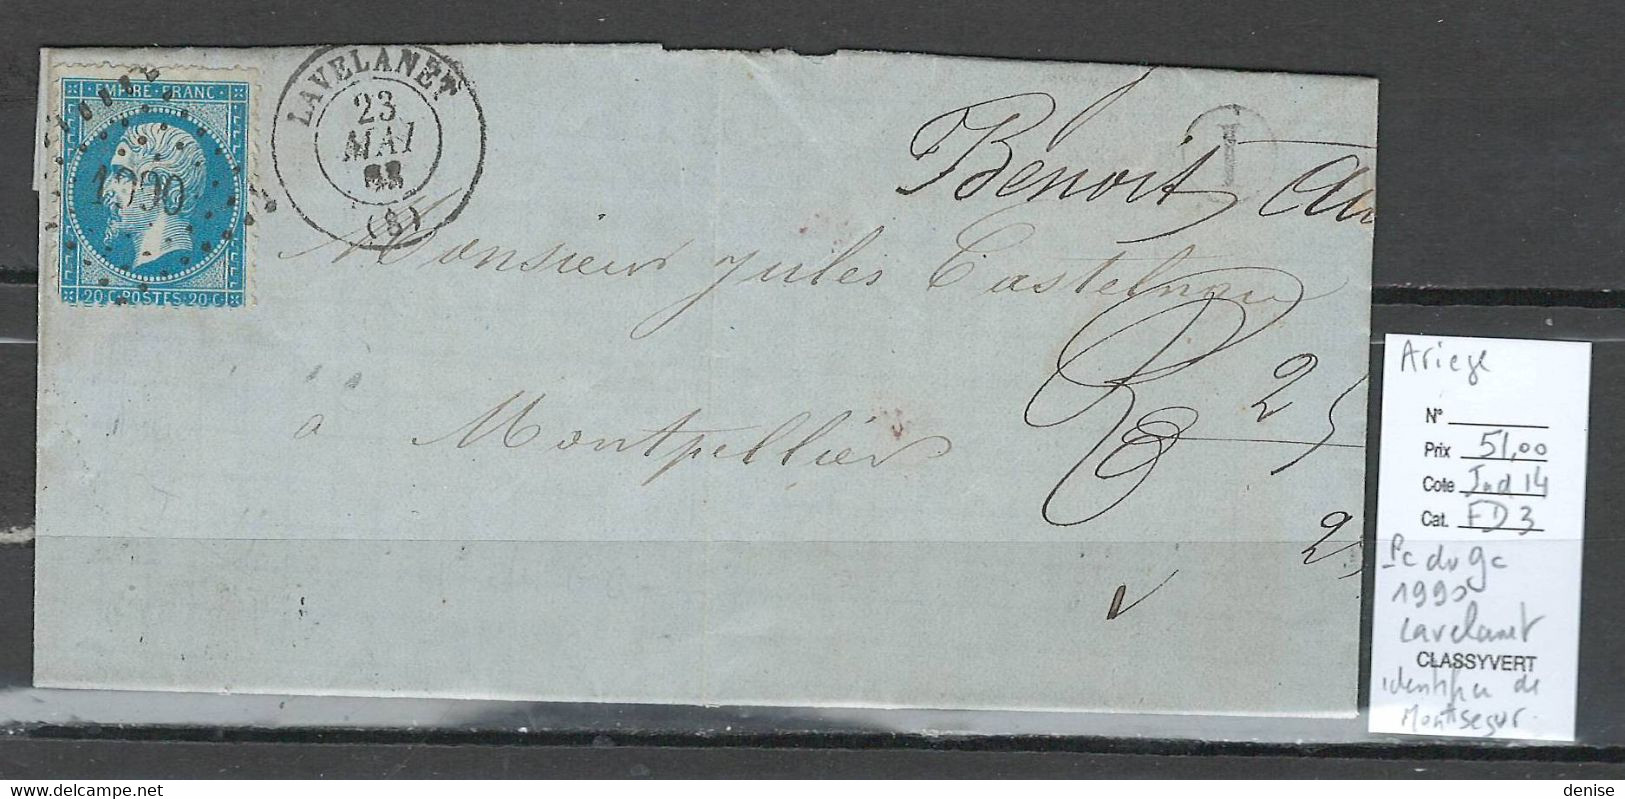 EMPIRE FRANC
1990
20 C POSTES 20 C
LAVELANET
23
MAI
(8)
I
Benoit
Monsieur Jules Castelnau
à Montpellier
25
2
Ariege
N°
Prix 51,00
Cote Ind 14
Cat. FD3
Pc du gc
1990
Lavelanet
CLASSYVERT
identifier de
Montsegur
www.delcampe.net
denise